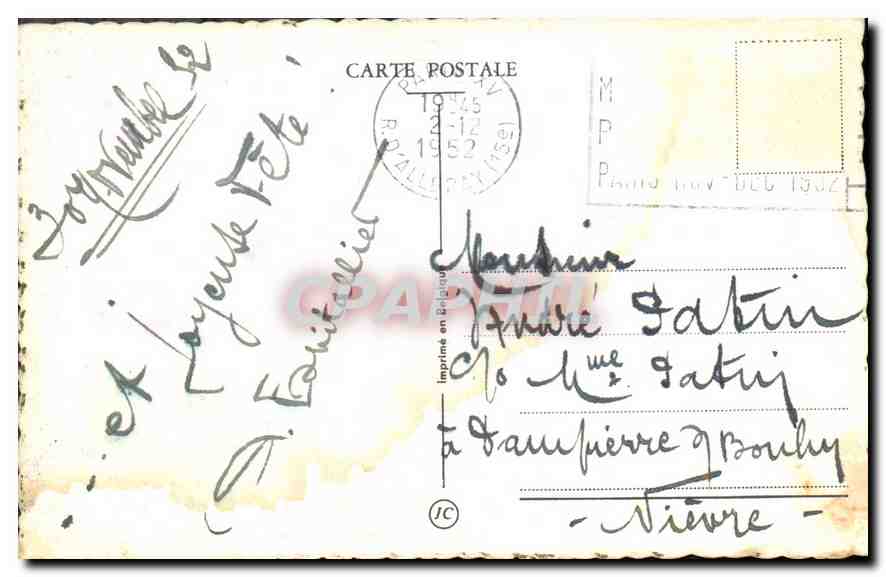 CARTE POSTALE
30 Novembre 52
... et Joyeuse Fête !
PARIS XV
19H45
2-12
1952
R. D'ALLERAY (15e)
M
P
P
PARIS NOV-DEC 1952
Monsieur
André Patin
c/o Mme Patin
à Dampierre s/ Bouhy
- Nièvre -
Imprimé en Belgique
JC
CPAPHIL